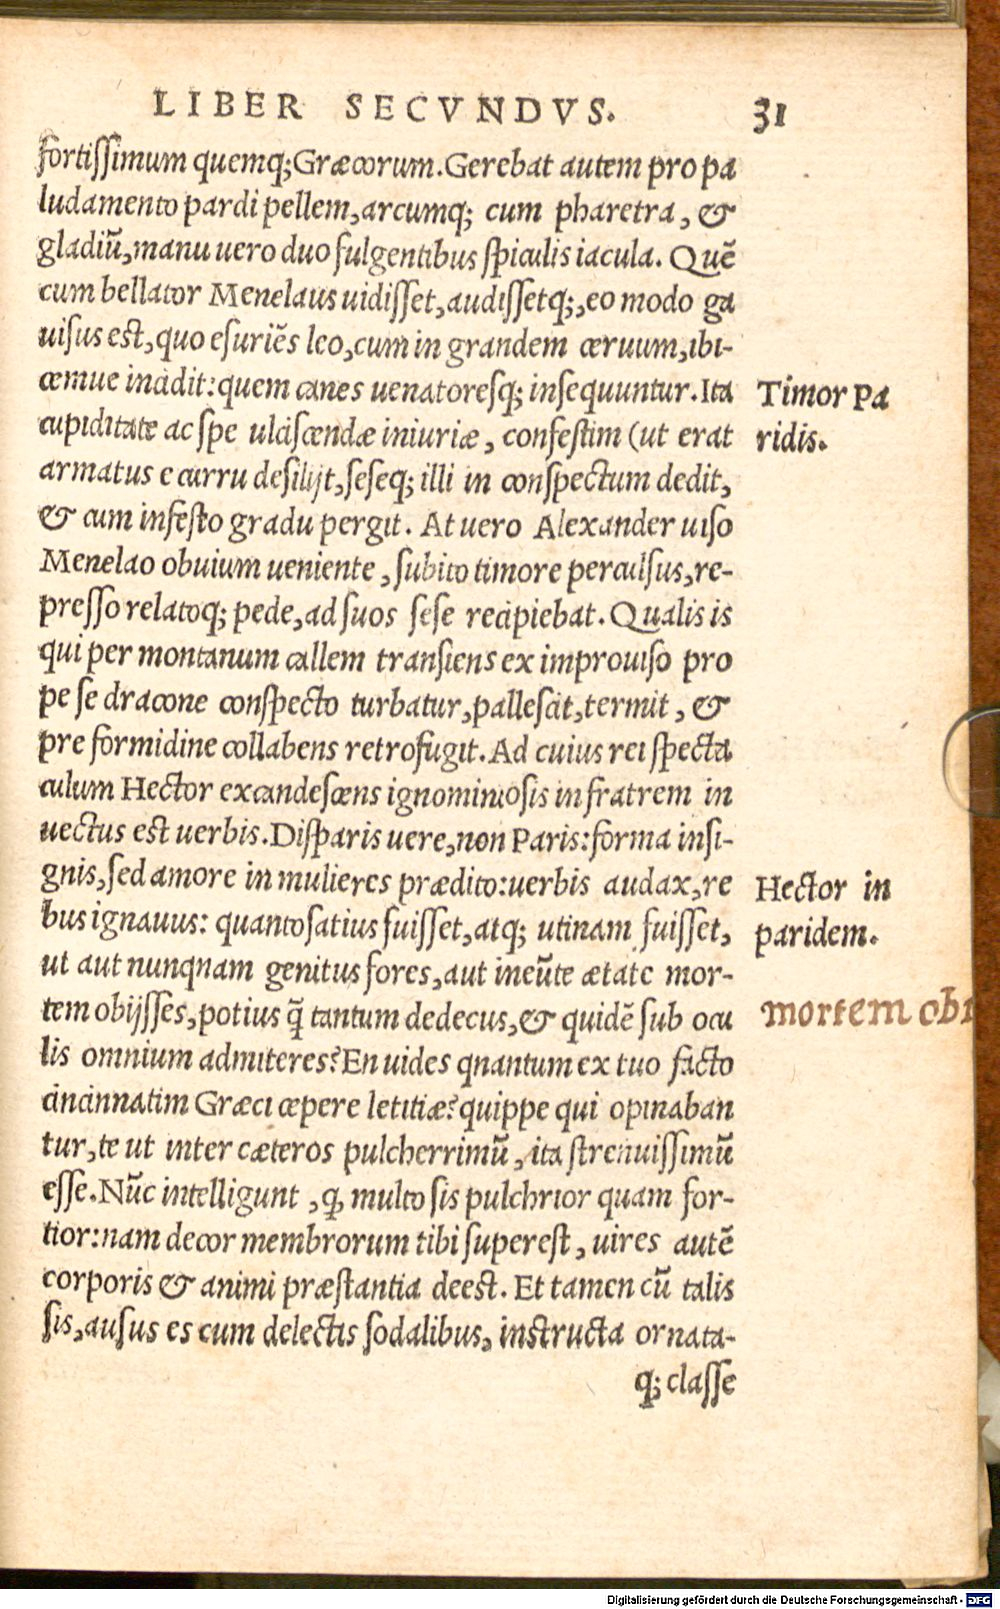 LIBER SECVNDVS. 31
fortiſſimum quemq;Græcorum.Gerebat autem pro pa
ludamento pardi pellem,arcumq; cum pharetra, &
gladiũ,manu uero duo fulgentibus ſpiculis iacula. Quẽ
cum bellator Menelaus uidiſſet,audiſſetq;,eo modo ga
uiſus eſt,quo eſuriẽs leo,cum in grandem ceruum,ibi-
cemue incidit:quem canes uenatoresq; inſequuntur.Ita
cupiditate ac ſpe ulciſcendæ iniuriæ, confeſtim (ut erat
Timor Pa
ridis.
armatus e curru deſilijt,ſeſeq; illi in conſpectum dedit,
& cum infeſto gradu pergit. At uero Alexander uiſo
Menelao obuium ueniente, ſubito timore perculſus,re-
preſſo relatoq; pede,ad ſuos ſeſe recipiebat.Qualis is
qui per montanum callem tranſiens ex improuiſo pro
pe ſe dracone conſpecto turbatur,palleſcit,termit, &
pre formidine collabens retrofugit.Ad cuius rei ſpecta
culum Hector excandeſcens ignominioſis in fratrem in
uectus eſt uerbis.Diſparis uere,non Paris:forma inſi-
gnis,ſed amore in mulieres prædito:uerbis audax,re
Hector in
paridem.
bus ignauus: quanto ſatius fuiſſet,atq; utinam fuiſſet,
ut aut nunqnam genitus fores,aut ineũte ætate mor-
tem obijſſes,potius q̃ tantum dedecus,& quidẽ ſub ocu
mortem obi
lis omnium admiteres?En uides qnantum ex tuo facto
cincinnatim Græci cepere letitiæ?quippe qui opinaban
tur,te ut inter cæteros pulcherrimũ, ita ſtrenuiſſimũ
eſſe.Nũc intelligunt ,ꝙ multo ſis pulchrior quam for-
tior:nam decor membrorum tibi ſupereſt, uires autẽ
corporis & animi præſtantia deeſt. Et tamen cũ talis
ſis,auſus es cum delectis ſodalibus, inſtructa ornata-
q; claſſe
Digitalisierung gefördert durch die Deutsche Forschungsgemeinschaft - DFG